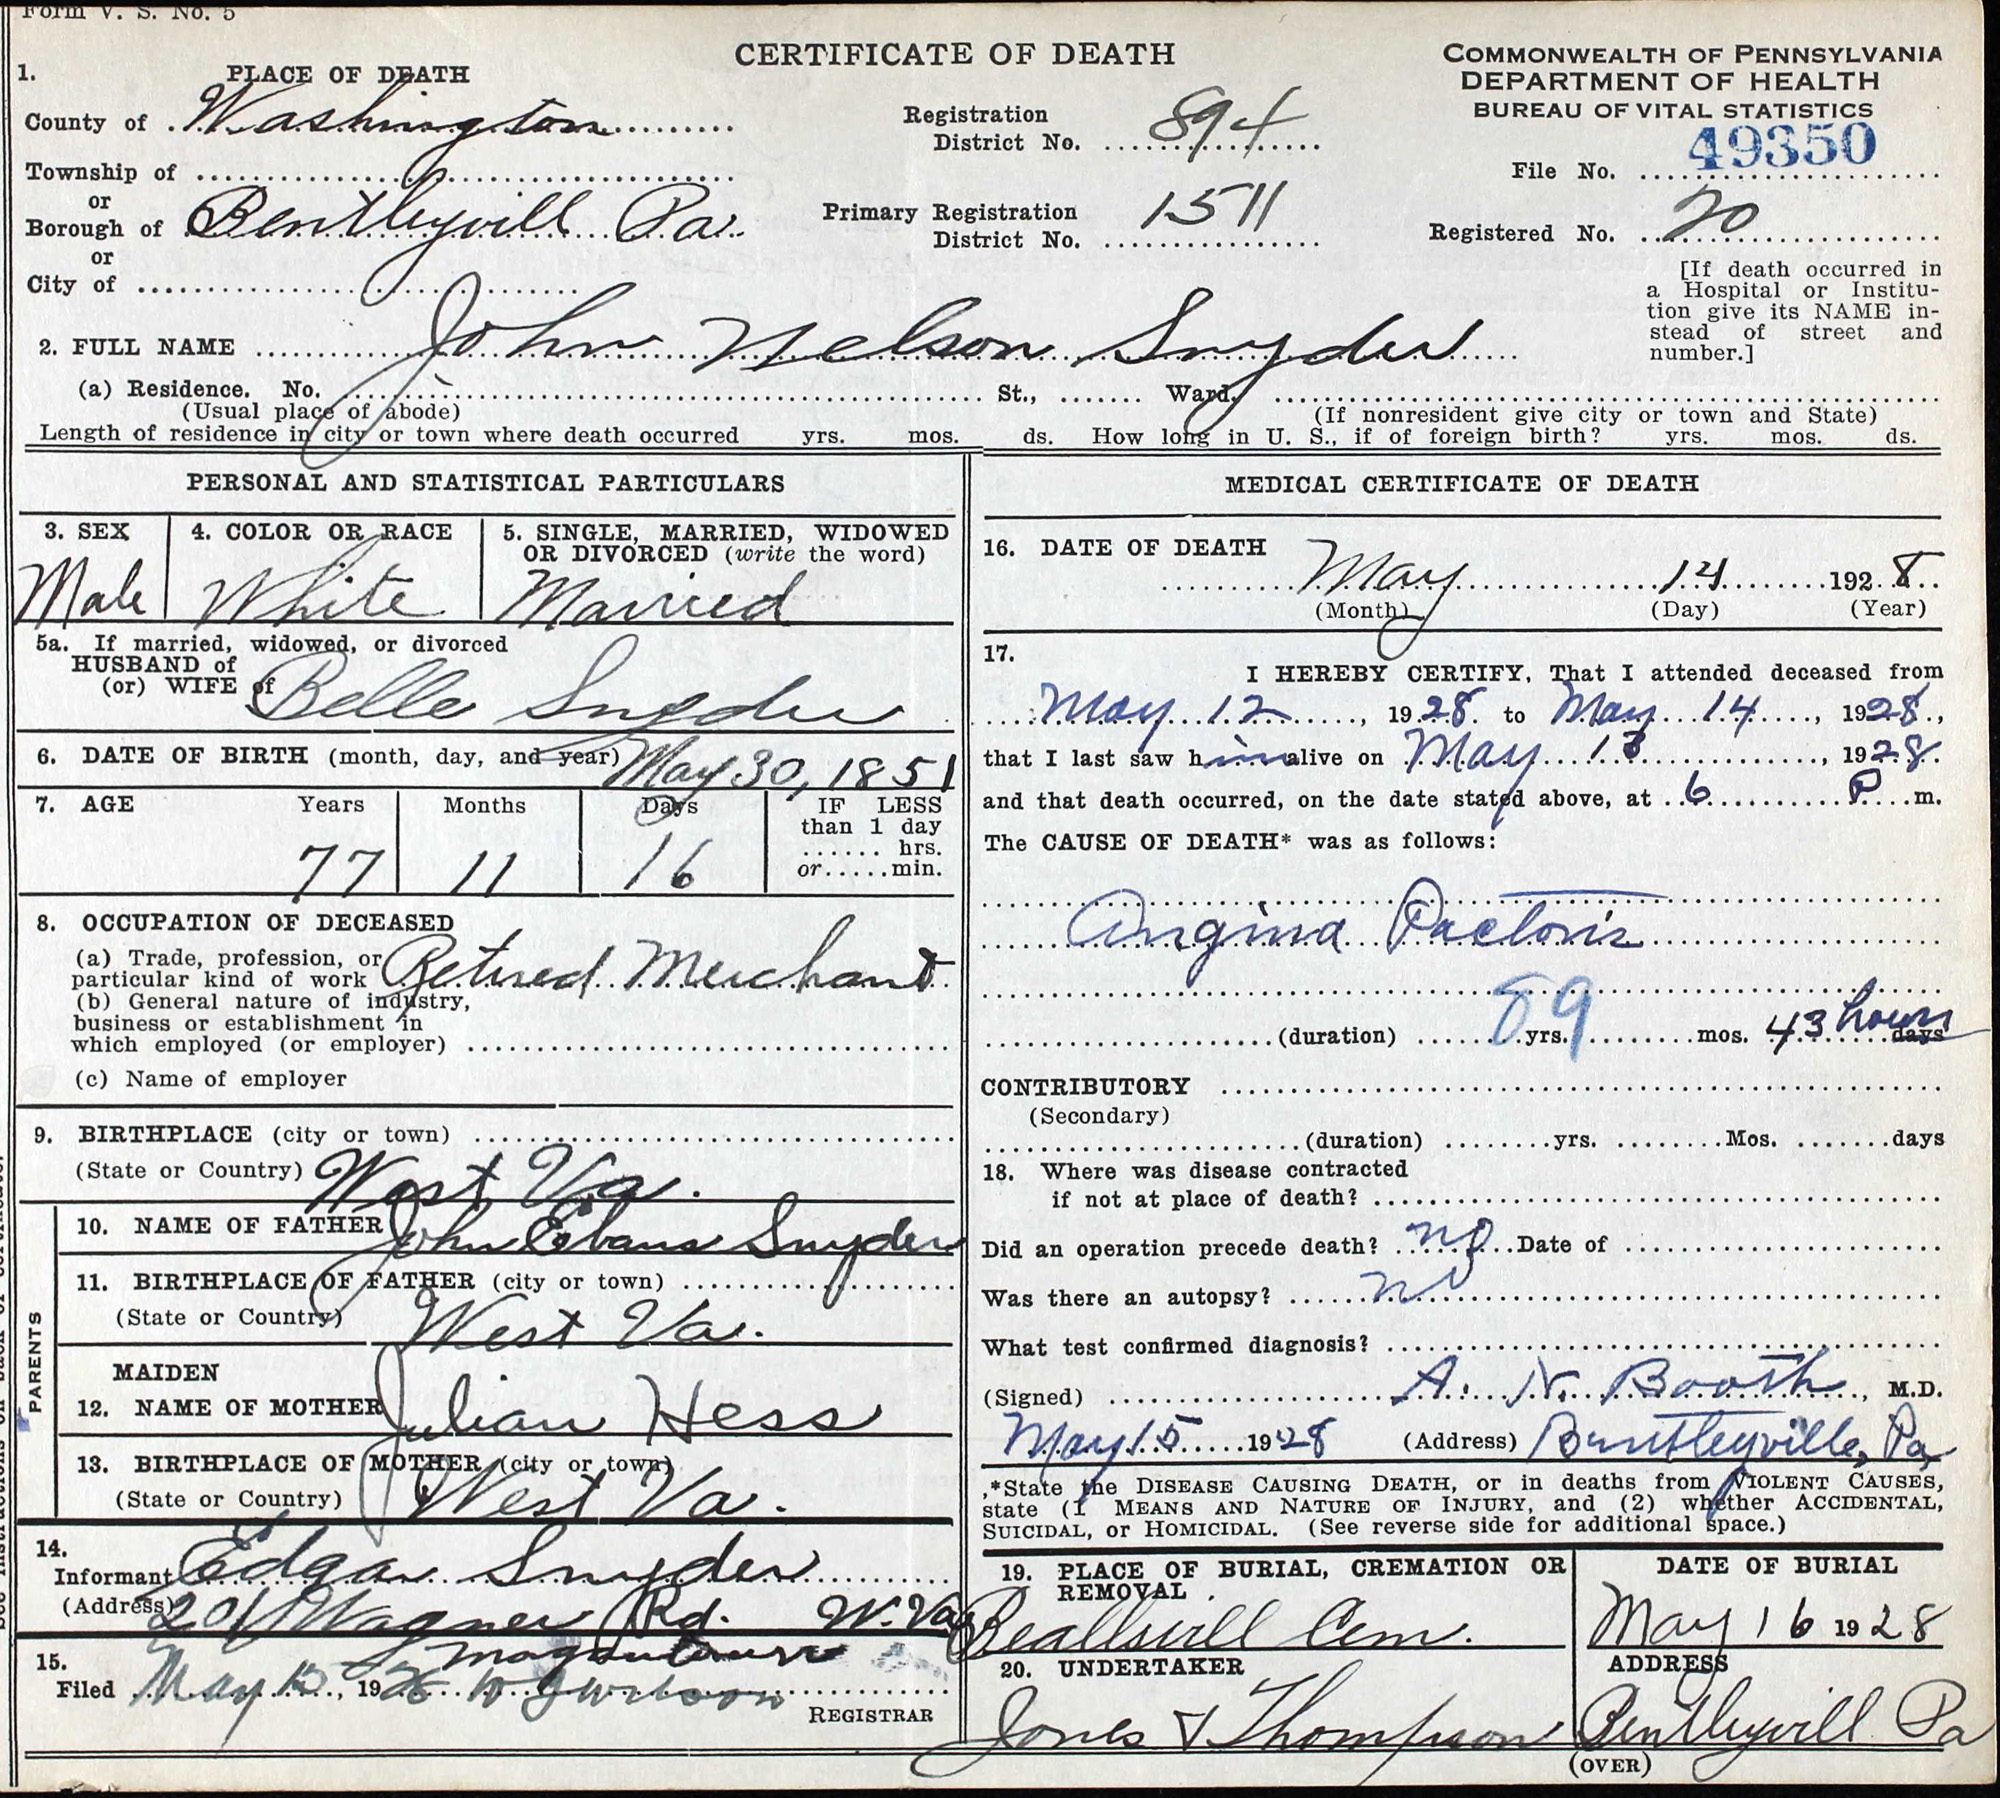 Form V. S. No. 5
CERTIFICATE OF DEATH
COMMONWEALTH OF PENNSYLVANIA
DEPARTMENT OF HEALTH
BUREAU OF VITAL STATISTICS
1. PLACE OF DEATH
County of Washington
Registration District No. 894
File No. 49350
Township of
or
Borough of Bentleyvill Pa.
Primary Registration District No. 1511
Registered No. 20
or
City of
[If death occurred in
a Hospital or Institu-
tion give its NAME in-
stead of street and
number.]
2. FULL NAME John Nelson Snyder
(a) Residence. No. St., Ward,
(Usual place of abode) (If nonresident give city or town and State)
Length of residence in city or town where death occurred yrs. mos. ds. How long in U. S., if of foreign birth? yrs. mos. ds.
PERSONAL AND STATISTICAL PARTICULARS
3. SEX
Male
4. COLOR OR RACE
White
5. SINGLE, MARRIED, WIDOWED
OR DIVORCED (write the word)
Married
5a. If married, widowed, or divorced
HUSBAND of
(or) WIFE of Belle Snyder
6. DATE OF BIRTH (month, day, and year) May 30, 1851
7. AGE Years Months Days IF LESS
than 1 day
hrs.
or min.
77 11 16
8. OCCUPATION OF DECEASED
(a) Trade, profession, or
particular kind of work Retired Merchant
(b) General nature of industry,
business or establishment in
which employed (or employer)
(c) Name of employer
9. BIRTHPLACE (city or town)
(State or Country) West Va.
PARENTS
10. NAME OF FATHER John Evans Snyder
11. BIRTHPLACE OF FATHER (city or town)
(State or Country) West Va.
MAIDEN
12. NAME OF MOTHER Julian Hess
13. BIRTHPLACE OF MOTHER (city or town)
(State or Country) West Va.
14.
Informant Edgar Snyder
(Address) 201 Wagner Rd. W. Va
15.
Filed May 15, 19
REGISTRAR
MEDICAL CERTIFICATE OF DEATH
16. DATE OF DEATH
May 14 1928
(Month) (Day) (Year)
17.
I HEREBY CERTIFY, That I attended deceased from
May 12, 1928 to May 14, 1928,
that I last saw him alive on May 13, 1928.
and that death occurred, on the date stated above, at 6 P m.
The CAUSE OF DEATH* was as follows:
Angina Pactoris
89
(duration) yrs. mos. 43 hours days
CONTRIBUTORY
(Secondary)
(duration) yrs. Mos. days
18. Where was disease contracted
if not at place of death?
Did an operation precede death? no Date of
Was there an autopsy? no
What test confirmed diagnosis?
(Signed) A. N. Booth, M.D.
May 15 1928 (Address) Bentleyville, Pa.
*State the DISEASE CAUSING DEATH, or in deaths from VIOLENT CAUSES,
state (1 MEANS AND NATURE OF INJURY, and (2) whether ACCIDENTAL,
SUICIDAL, or HOMICIDAL. (See reverse side for additional space.)
19. PLACE OF BURIAL, CREMATION OR
REMOVAL
Beallsvill Cem.
DATE OF BURIAL
May 16 1928
20. UNDERTAKER
Jones & Thompson
ADDRESS
Bentleyvill Pa
(OVER)